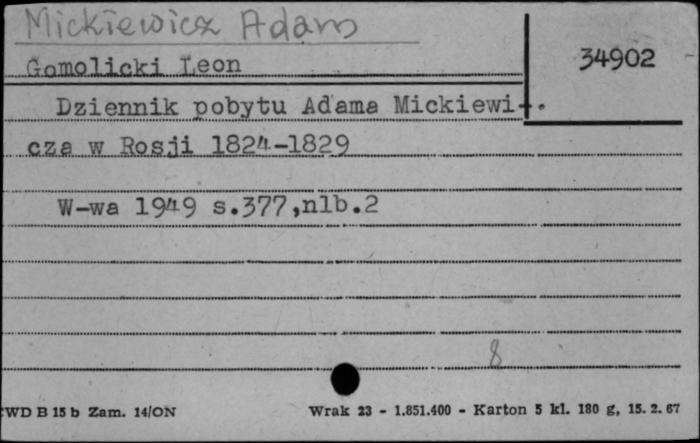 Mickiewicz Adam
34902
Gomolicki Leon
Dziennik pobytu Adama Mickiewi-.
cza w Rosji 1824-1829
W-wa 1949 s.377,nlb.2
8
WD B 15 b Zam. 14/ON Wrak 23 - 1.851.400 - Karton 5 kl. 180 g, 15. 2. 67